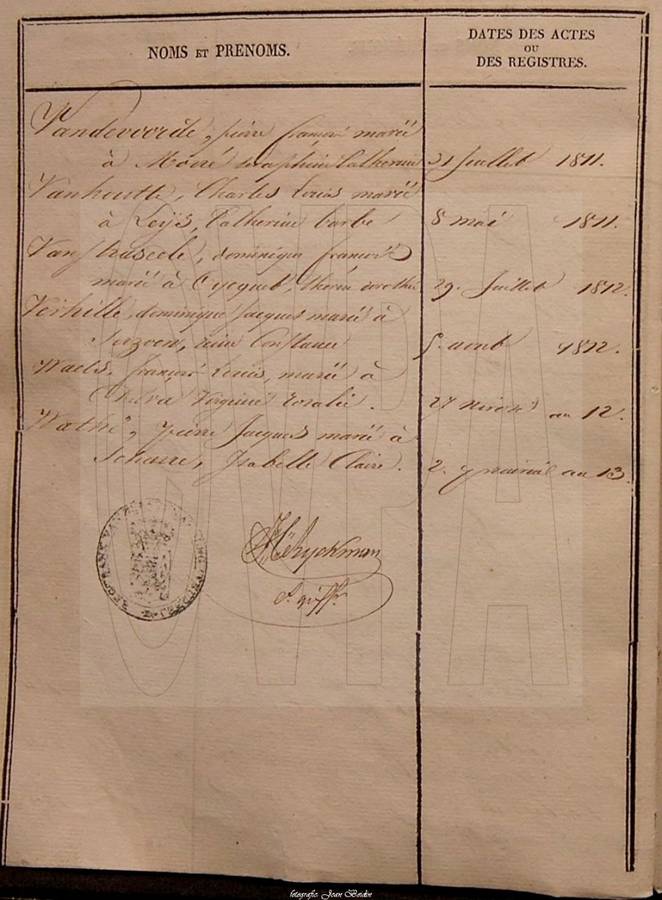 NOMS ET PRENOMS.
DATES DES ACTES
OU
DES REGISTRES.
Vandevoorde, pierre françois marié
à Moiré Seraphine Catherine 31 Juillet 1811.
Vanhoutte, Charles Louis marié
à Leijs, Catherine barbe 8 mai 1811.
Vanstraseele, dominique françois
marié à Cycquel, therese dorothée 29. Juillet 1812.
Verhille, dominique Jacques marié à
Constance 5. aout 1812.
Waels, françois Louis, marié à
Virginie rosalie. 27 nivose an 12.
Wathé, pierre Jacques marié à
Isabelle Claire. 2. prairial an 13.
fotografie: Joan Bodin